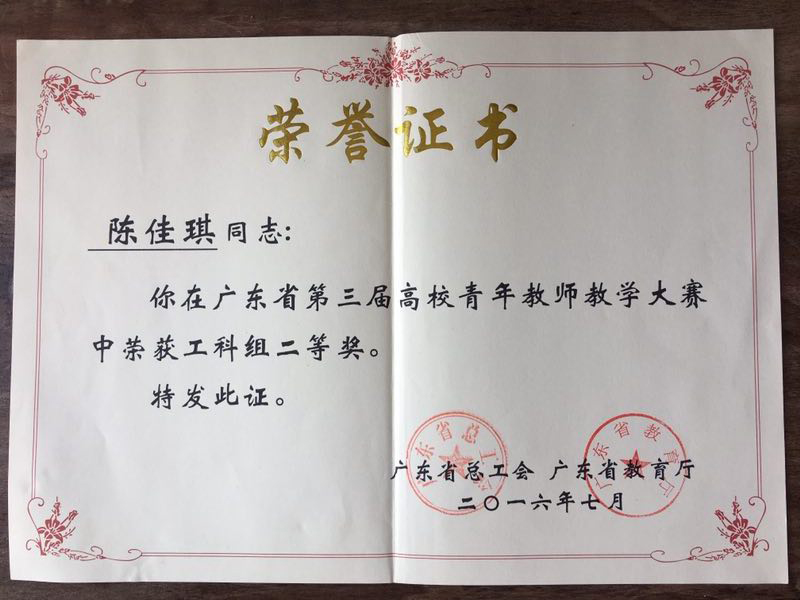 荣誉证书
陈佳琪同志：
你在广东省第三届高校青年教师教学大赛
中荣获工科组二等奖。
特发此证。
广东省总工会
广东省教育厅
广东省总工会 广东省教育厅
二〇一六年七月